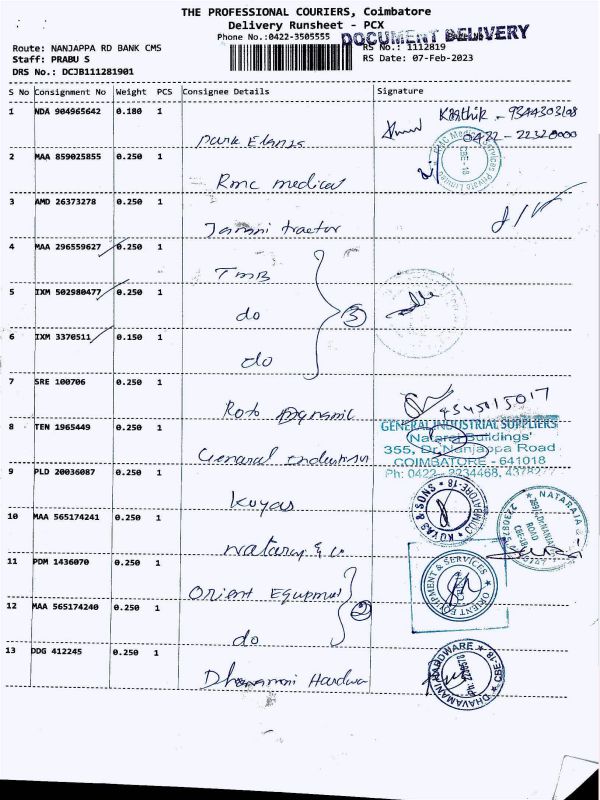 THE PROFESSIONAL COURIERS, Coimbatore
Delivery Runsheet - PCX
Phone No.:0422-3505555
DOCUMENT DELIVERY
Route: NANJAPPA RD BANK CMS
RS No.: 1112819
Staff: PRABU S
RS Date: 07-Feb-2023
DRS No.: DCJB111281901
S No Consignment No Weight PCS Consignee Details Signature
1 NDA 904965642 0.180 1
Karthik - 9344303108
0422 - 22320000
Park Elanza
2 MAA 859025855 0.250 1
RMC Medical Services Private Limited
CBE-18
Rmc medical
3 AMD 26373278 0.250 1
Janani tractor
4 MAA 296559627 0.250 1
TMB
5 IXM 502980477 0.250 1
do
3
6 IXM 3370511 0.150 1
do
7 SRE 100706 0.250 1
9345015017
Roto Dynamic
8 TEN 1965449 0.250 1
GENERAL INDUSTRIAL SUPPLIERS
'Nataraj Buildings'
355, Dr. Nanjappa Road
COIMBATORE - 641018
Ph: 0422 - 2234468,
General Industrial
9 PLD 20036087 0.250 1
KUYAS & SONS * COIMBATORE-18 *
Kuyas
10 MAA 565174241 0.250 1
NATARAJ
ROAD
CBE-18
Nataraj & Co
11 PDM 1436070 0.250 1
ORIENT EQUIPMENT & SERVICES
Orient Equipment
12 MAA 565174240 0.250 1
2
do
13 DDG 412245 0.250 1
DHAVAMANI HARDWARE * CBE-18 *
Dhavamani Hardwa